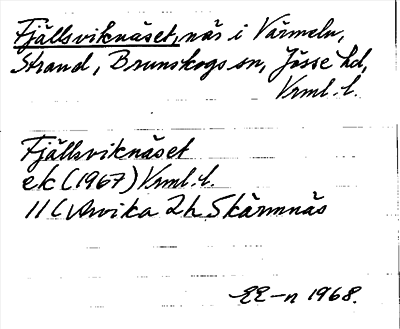 Fjällsviknäset, näs i Värmeln,
Strand, Brunskogs sn, Jösse hd,
Vrml. l.
Fjällsviknäset
ek (1967) Vrml. l.
11 C Arvika 2h Skärmnäs
EE-n 1968.